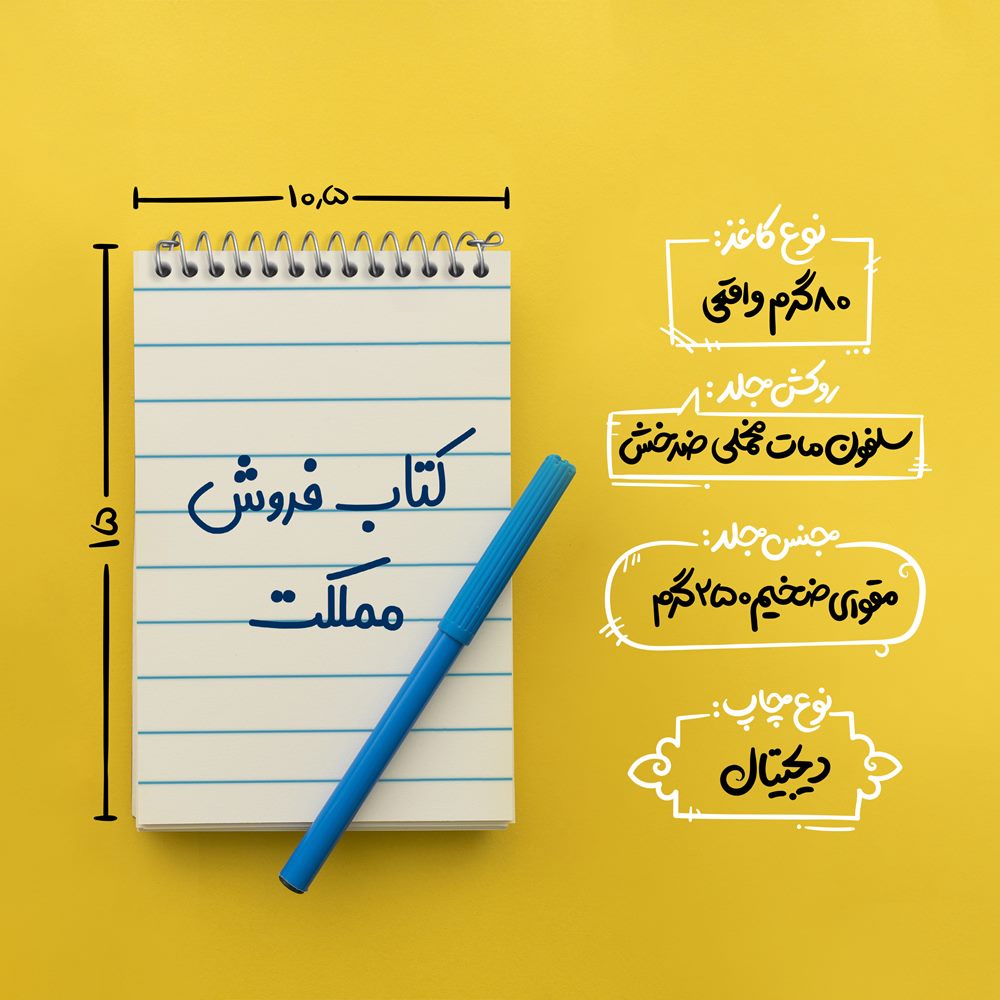 ۱۰,۵
۱۵
کتاب فروش
مملکت
نوع کاغذ:
۸۰گرم واقعی
روکش جلد:
سلفون مات مخملی ضدخش
جنس جلد:
مقوای ضخیم ۲۵۰گرم
نوع چاپ:
دیجیتال